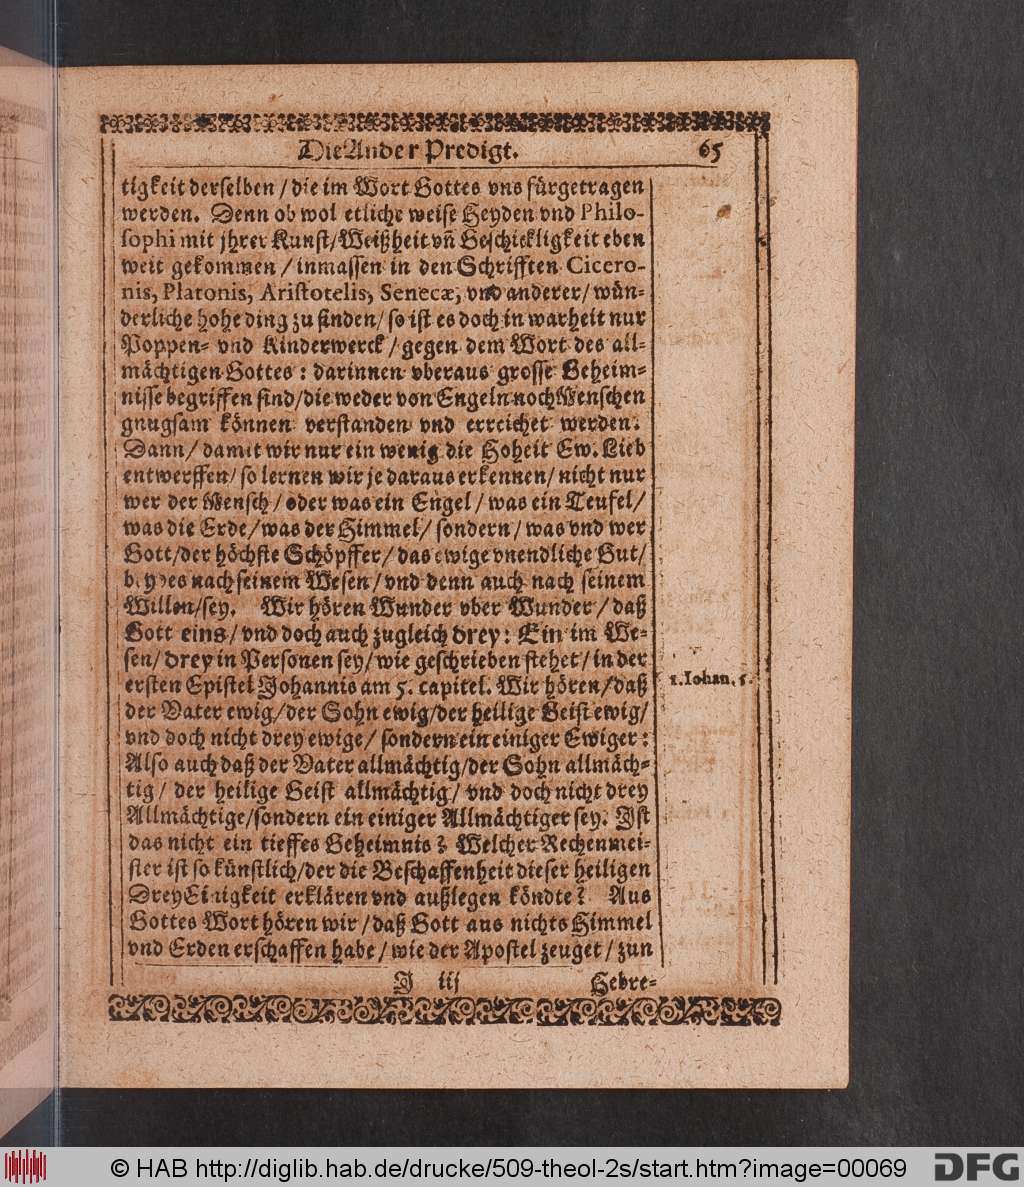 Die Ander Predigt. 65
tigkeit derselben / die im Wort Gottes vns fürgetragen
werden. Denn ob wol etliche weise Heyden vnd Philo-
sophi mit jhrer Kunst/Weißheit vñ Geschickligkeit eben
weit gekommen / inmassen in den Schrifften Cicero-
nis, Platonis, Aristotelis, Senecæ, vnd anderer/ wün-
derliche hohe ding zu finden/ so ist es doch in warheit nur
Poppen- vnd Kinderwerck / gegen dem Wort des all-
mächtigen Gottes : darinnen vberaus grosse Geheim-
nisse begriffen sind/die weder von Engeln noch Menschen
gnugsam können verstanden vnd erreichet werden.
Dann/ damit wir nur ein wenig die Hoheit Ew. Lieb
entwerffen/ so lernen wir je daraus erkennen/ nicht nur
wer der Mensch / oder was ein Engel / was ein Teufel/
was die Erde/ was der Himmel/ sondern / was vnd wer
Gott/der höchste Schöpffer/ das ewige vnendliche Gut/
beydes nach seinem Wesen/ vnd denn auch nach seinem
Willen/sey. Wir hören Wunder vber Wunder/ daß
Gott eins/ vnd doch auch zugleich drey: Ein im We-
sen/ drey in Personen sey/ wie geschrieben stehet/ in der
ersten Epistel Johannis am 5. capitel. Wir hören/ daß
1. Iohan. 5.
der Vater ewig/der Sohn ewig/der heilige Geist ewig/
vnd doch nicht drey ewige/ sondern ein einiger Ewiger:
Also auch daß der Vater allmächtig/der Sohn allmäch-
tig / der heilige Geist allmächtig/ vnd doch nicht drey
Allmächtige/sondern ein einiger Allmächtiger sey. Ist
das nicht ein tieffes Geheimnis? Welcher Rechenmei-
ster ist so künstlich/der die Beschaffenheit dieser heiligen
DreyEinigkeit erklären vnd außlegen köndte? Aus
Gottes Wort hören wir / daß Gott aus nichts Himmel
vnd Erden erschaffen habe / wie der Apostel zeuget / zun
J iij Hebre-
© HAB http://diglib.hab.de/drucke/509-theol-2s/start.htm?image=00069 DFG